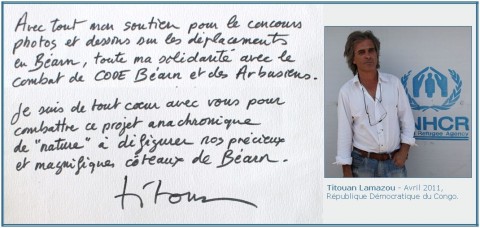 Avec tout mon soutien pour le concours
photos et dessins sur les déplacements
en Béarn, toute ma solidarité avec le
combat de CODE Béarn et des Arbusiens.
Je suis de tout cœur avec vous pour
combattre ce projet anachronique
de "nature" à défigurer nos précieux
et magnifiques côteaux de Béarn.
titouan
UNHCR
Refugee Agency
Titouan Lamazou - Avril 2011,
République Démocratique du Congo.